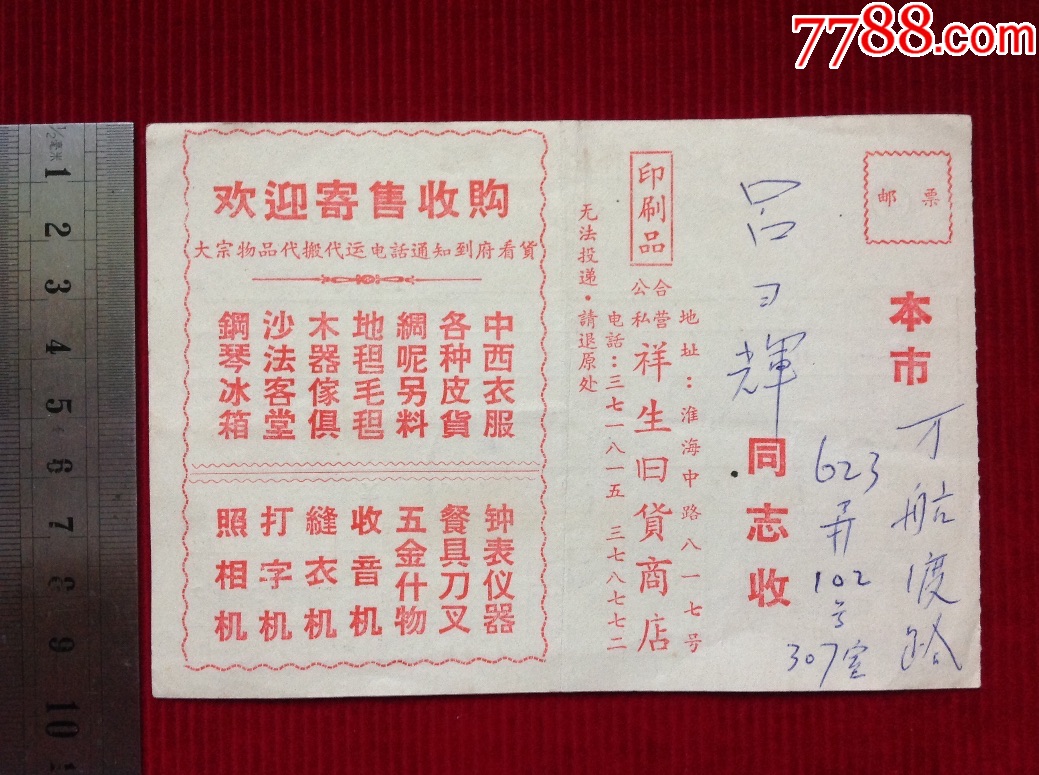 7788.com
邮票
本市
万航渡路
623弄102号
307室
吕
輝
同志收
印刷品
公私合营祥生旧貨商店
地址：淮海中路八一七号
电話：三七一八一五 三七八七七二
无法投递·請退原处
欢迎寄售收购
大宗物品代搬代运电話通知到府看貨
中西衣服
各种皮貨
綢呢另料
地毯毛毯
木器傢俱
沙法客堂
鋼琴冰箱
钟表仪器
餐具刀叉
五金什物
收音机
縫衣机
打字机
照相机
1/2毫米
1 2 3 4 5 6 7 8 9 10